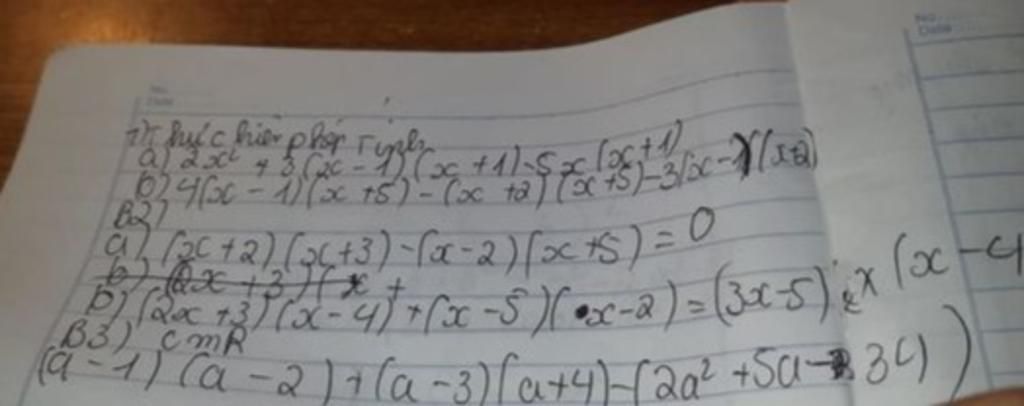 No.
Date
No.
Date
1) Thực hiện phép Tính
a) 2x² + 3(x - 1)(x + 1) - 5x(x + 1)
b) 4(x - 1)(x + 5) - (x + 2)(x + 5) - 3(x - 1)(x + 2)
B2)
a) (x + 2)(x + 3) - (x - 2)(x + 5) = 0
b) (2x + 3)(x +
b) (2x + 3)(x - 4) + (x - 5)(x - 2) = (3x - 5)(x - 4
B3) CmR
(a - 1)(a - 2) + (a - 3)(a + 4) - (2a² + 5a - 34)